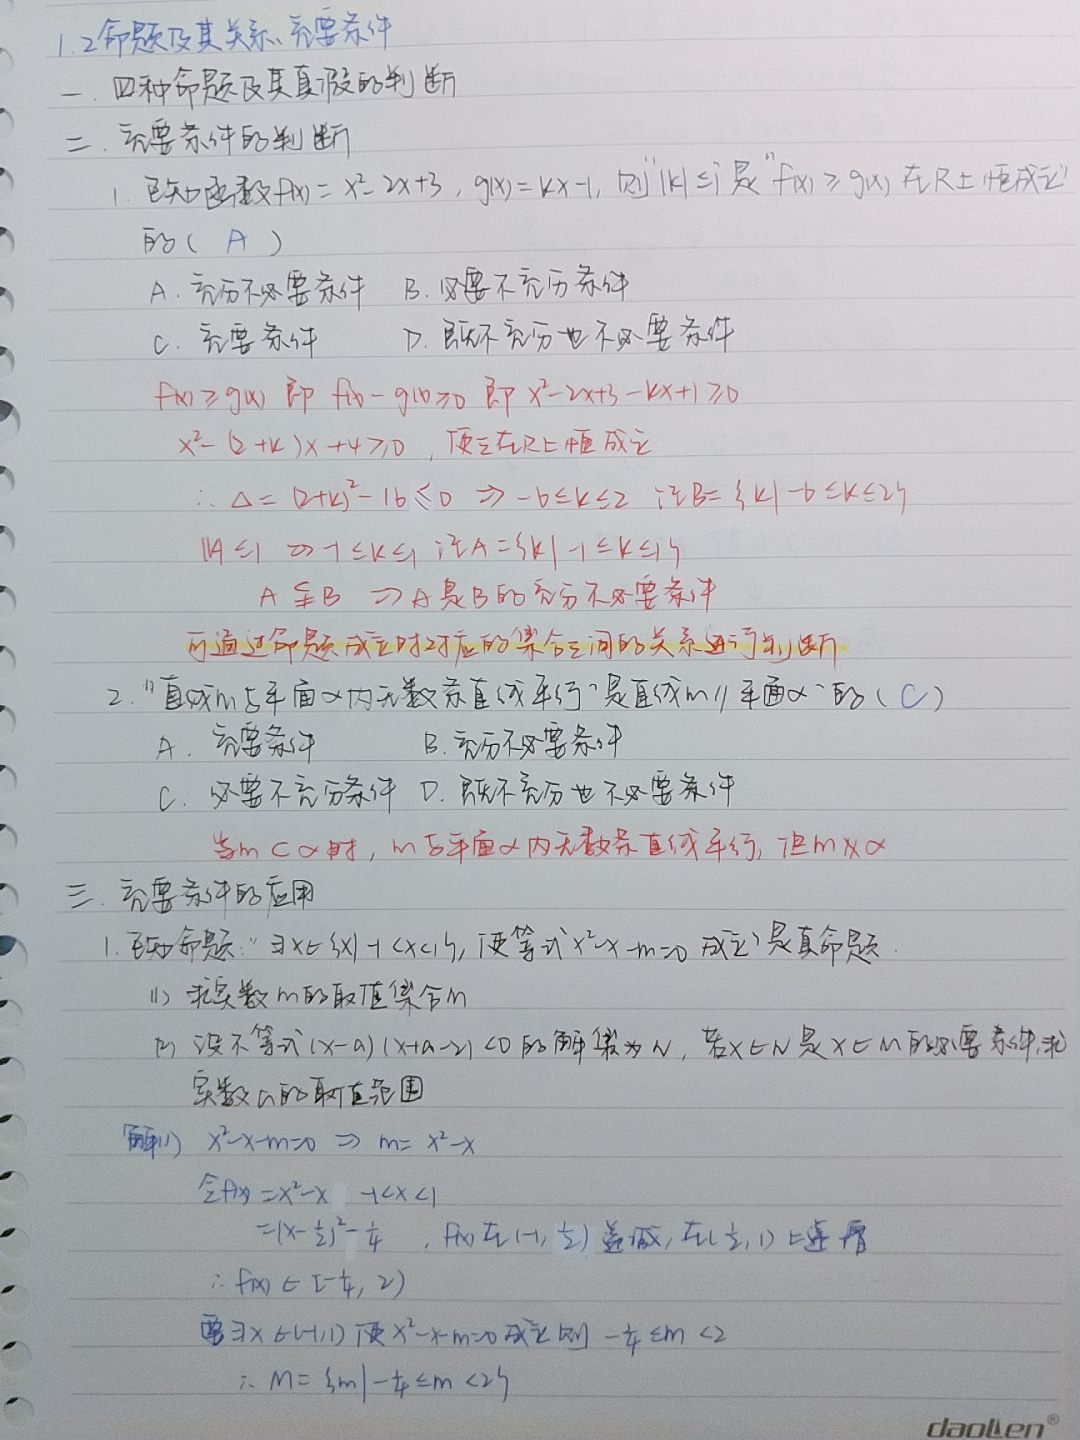 1.2命题及其关系、充要条件
一. 四种命题及其真假的判断
二. 充要条件的判断
1. 已知函数f(x)=x²-2x+3, g(x)=kx-1, 则"|k|≤1"是"f(x)≥g(x)在R上恒成立"
的( A )
A. 充分不必要条件 B. 必要不充分条件
C. 充要条件 D. 既不充分也不必要条件
f(x)≥g(x) 即 f(x)-g(x)≥0 即 x²-2x+3-kx+1≥0
x²-(2+k)x+4≥0, 使之在R上恒成立
∴ Δ=(2+k)²-16≤0 ⇒ -6≤k≤2 记B={k|-6≤k≤2}
|k|≤1 ⇒ -1≤k≤1 记A={k|-1≤k≤1}
A⫋B ⇒ A是B的充分不必要条件
可通过命题成立时对应的集合之间的关系进行判断
2. "直线m与平面α内无数条直线平行"是直线m//平面α"的( C )
A. 充要条件 B. 充分不必要条件
C. 必要不充分条件 D. 既不充分也不必要条件
当m⊂α时, m与平面α内无数条直线平行, 但m∦α
三. 充要条件的应用
1. 已知命题:"∃x∈{x|-1<x<1}, 使等式x²-x-m=0成立"是真命题.
(1) 求实数m的取值集合M
(2) 设不等式(x-a)(x+a-2)<0的解集为N, 若x∈N是x∈M的必要条件, 求
实数a的取值范围
解(1) x²-x-m=0 ⇒ m=x²-x
令f(x)=x²-x -1<x<1
=(x-½)²-¼, f(x)在(-1,½)递减, 在(½,1)上递增
∴ f(x)∈[-¼, 2)
要∃x∈(-1,1)使x²-x-m=0成立则 -¼≤m<2
∴ M={m|-¼≤m<2}
daollen®